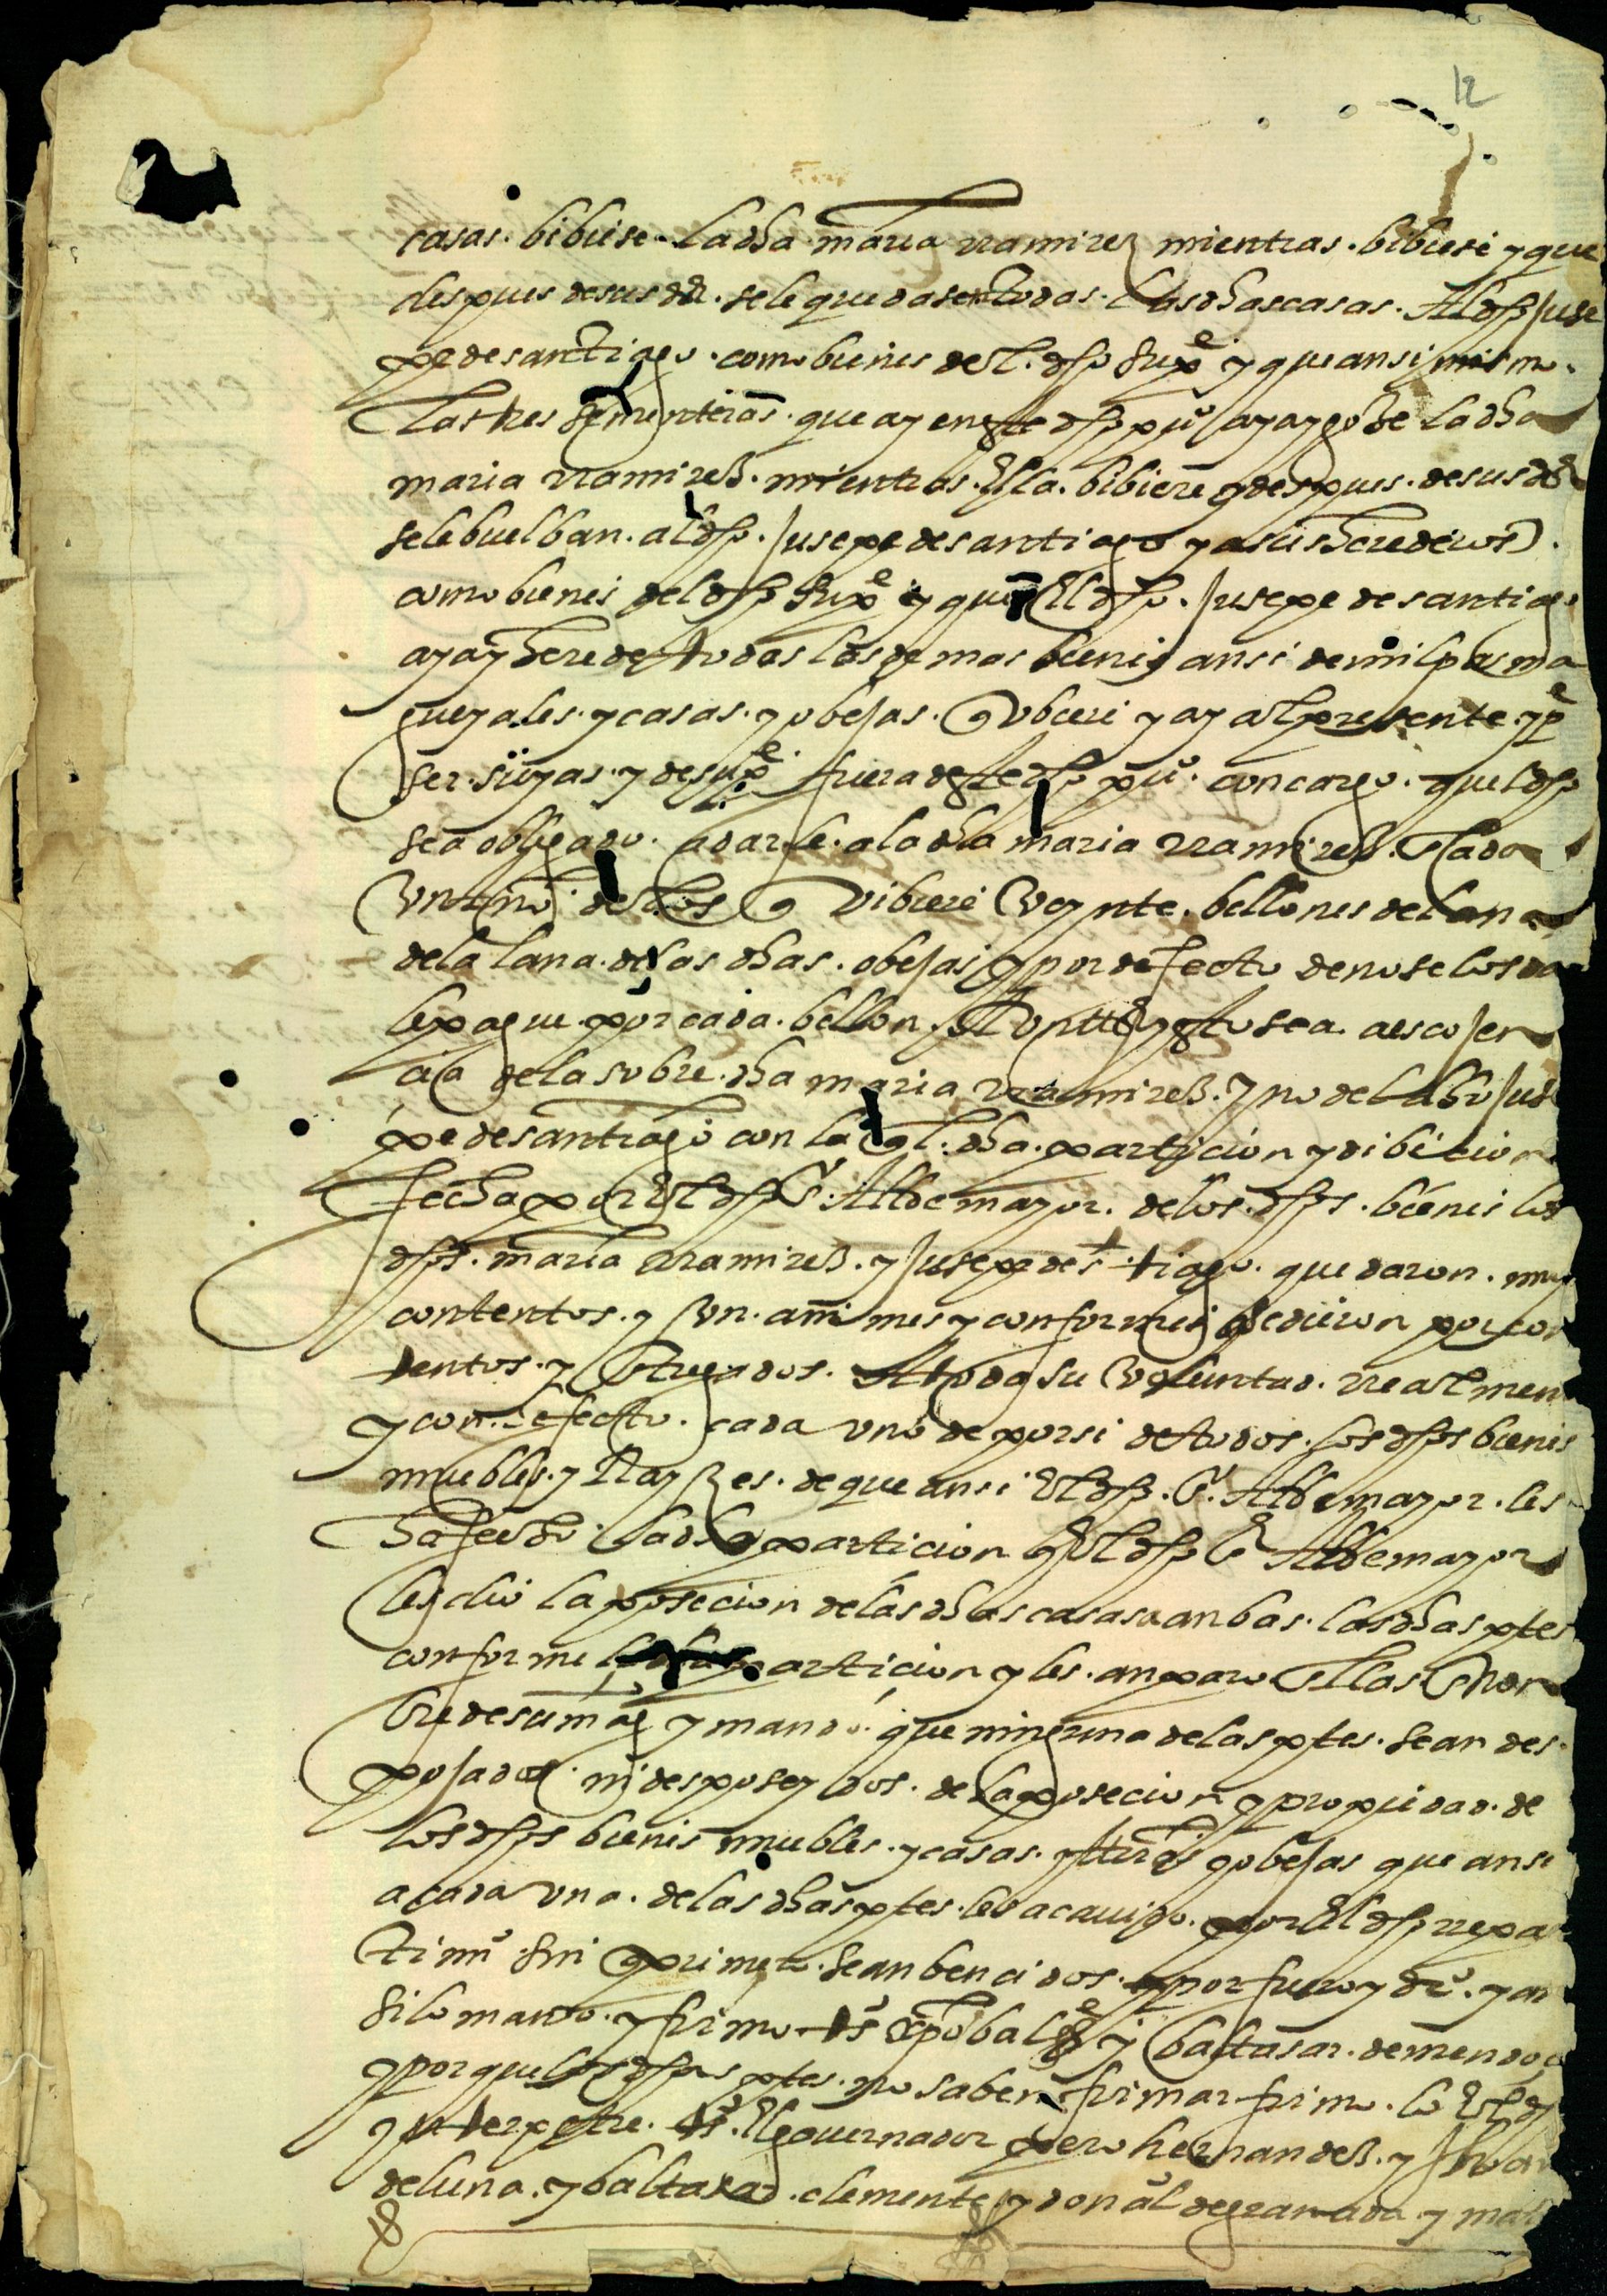 12
casas. bibiese. la dha maria rramires mientras. bibiese y que
despues de sus ds. se le quedasen todas. las dhas casas. Al dho juse
pe de santiago. como bienes del. dho su pe y que ansi mismo.
las tres sementeras. que ay en este dho pu° aya y gose la dha
maria rramires. mientras. ella. bibiere y despues. de sus ds
se le buelban. al dho. jusepe de santiago y a sus herederos.
como bienes del dho su pe y que el dho. jusepe de santiago
aya y herede todos los demas bienes ansi de milpas ma
gueyales. y casas. y obejas. q ubiere y ay al presente. y pe
ser. suyas. y de su pe fuera deste dho pu°. con cargo. quel dho
sea obligado. a dar le. a la dha maria rramires. cada
un año de los q bibiere veynte. bellones de lana
de la lana. de las dhas. obejas y por defecto de no se los dar
le pague por cada. bellon. un tt° y esto sea. a escojen
cia de la sobre. dha maria rramires. y no del dho juse
pe de santiago con la ql. dha. particion y dibicion
fecha por el dho sr. Allde mayor. de los. dhos. bienes los
dhos. maria rramires. y jusepe de s tiago. quedaron. muy
contentos. y un. animes y conformes y se dieron por con
tentos. y entregados. A toda su voluntad. rrealmen
y con. efecto. cada uno de por si de todos. los dhos bienes
muebles. y Rayzes. de que ansi el dho. sr. Allde mayor. les
ha fecho. la dha particion y el dho sr Allde mayor
les dio la posecion de las dhas casas a anbas. las dhas ptes
conforme particion y les. anparo en ellas en non
bre de su mag y mando. que ninguna de las ptes. sean des.
pojados. ni desposeydos. de la posecion y propiedad. de
los dhos bienes muebles. y casas. y tierras y obejas que ansi
a cada una. de las dhas ptes. les a cauido. por el dho rrepar
timi° sin primero. sean bencidos. por fuero y dr°. y an
si lo mando. y firmo ts° xpobal y baltasar. de mendoça
y porque los dhos ptes. no saben firmar firmo. lo el dho
ynterpetre. ts°. el gouernador pero hernandes. y juan
de luna. y baltasar. clemente y don al de granada y mar